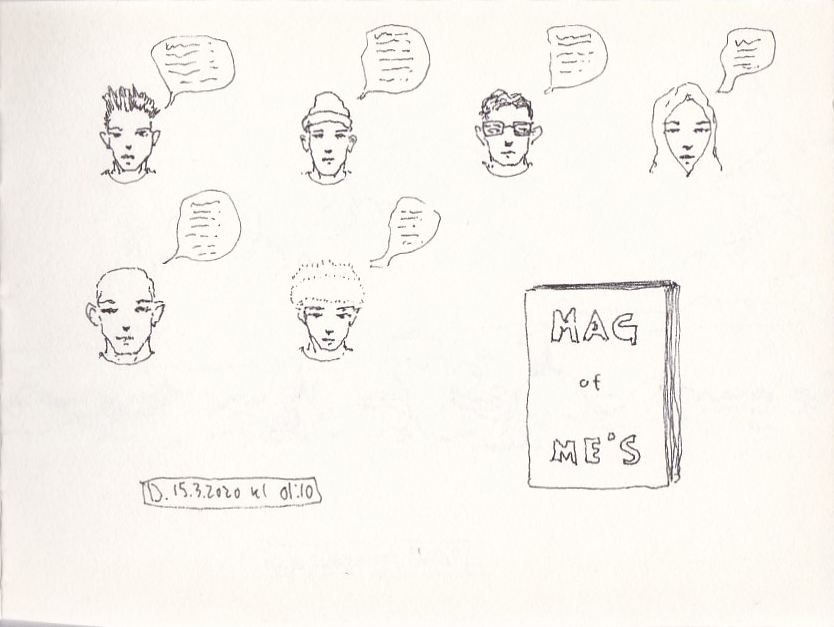 MAG
of
ME'S
D. 15.3.2020 kl 01:10